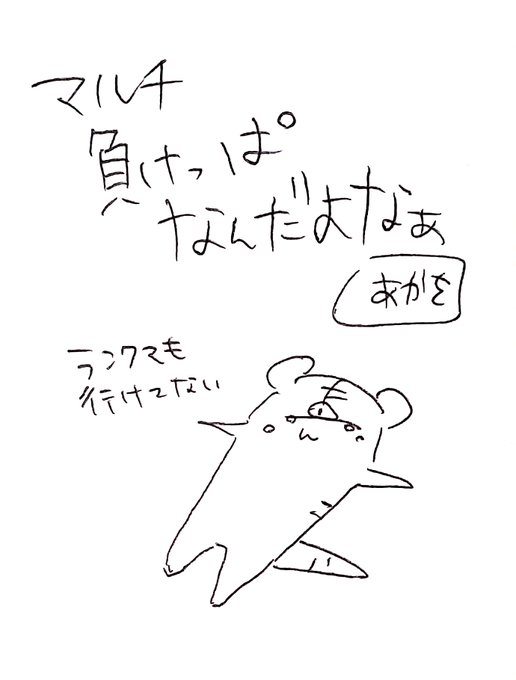 マルチ
負けっぱ
なんだよなぁ
あかを
ランクマも
行けてない